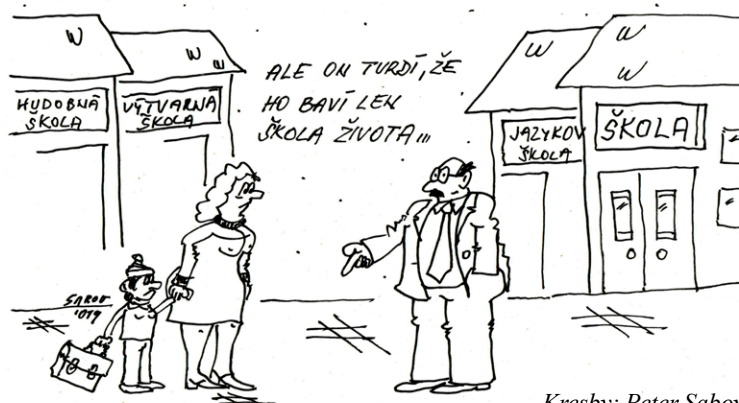 HUDOBNÁ
ŠKOLA
VÝTVARNÁ
ŠKOLA
ALE ON TVRDÍ, ŽE
HO BAVÍ LEN
ŠKOLA ŽIVOTA...
JAZYKOV
ŠKOLA
ŠKOLA
SABOV
'019
Kresby: Peter Sabov